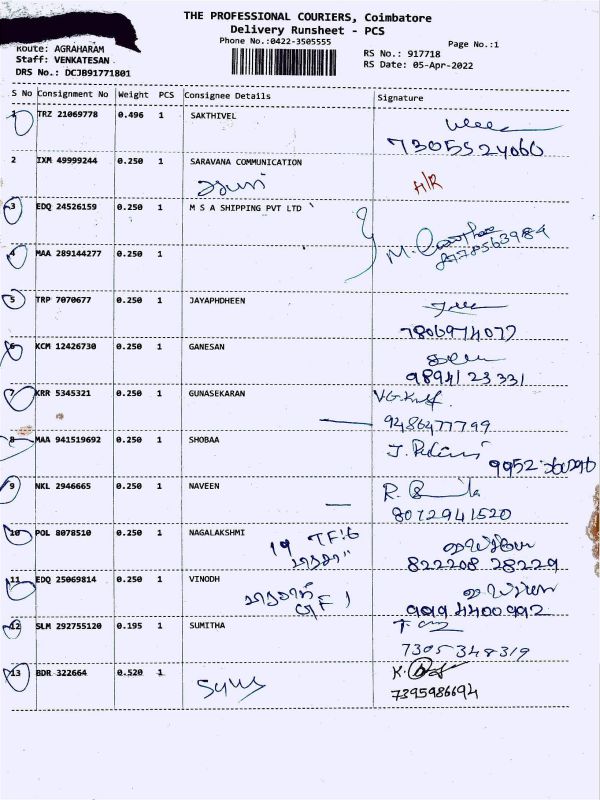 THE PROFESSIONAL COURIERS, Coimbatore
Delivery Runsheet - PCS
Phone No.:0422-3505555
Page No.:1
Route: AGRAHARAM
RS No.: 917718
Staff: VENKATESAN
RS Date: 05-Apr-2022
DRS No.: DCJB91771801
S No Consignment No Weight PCS Consignee Details Signature
1 TRZ 21069778 0.496 1 SAKTHIVEL
7305524060
2 IXM 49999244 0.250 1 SARAVANA COMMUNICATION
A/R
3 EDQ 24526159 0.250 1 M S A SHIPPING PVT LTD
4 MAA 289144277 0.250 1
M.
5 TRP 7070677 0.250 1 JAYAPHDHEEN
7806974077
6 KCM 12426730 0.250 1 GANESAN
9894123331
7 KRR 5345321 0.250 1 GUNASEKARAN
9486477799
8 MAA 941519692 0.250 1 SHOBAA
9952
9 NKL 2946665 0.250 1 NAVEEN
R.
8072941520
10 POL 8078510 0.250 1 NAGALAKSHMI
19
822208 28229
11 EDQ 25069814 0.250 1 VINODH
999 4400992
12 SLM 292755120 0.195 1 SUMITHA
7305348319
13 BDR 322664 0.520 1
K.
7395986694